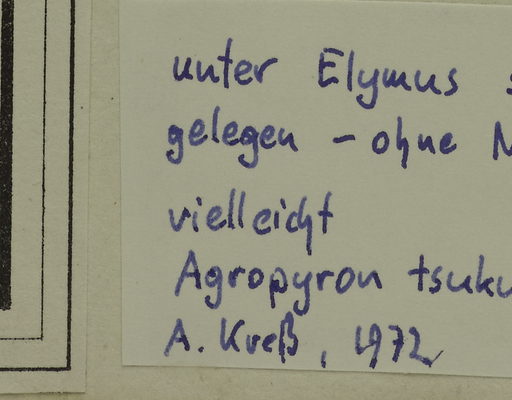 unter Elymus s
gelegen - ohne N
vielleicht
Agropyron tsuku
A. Kreß, 1972